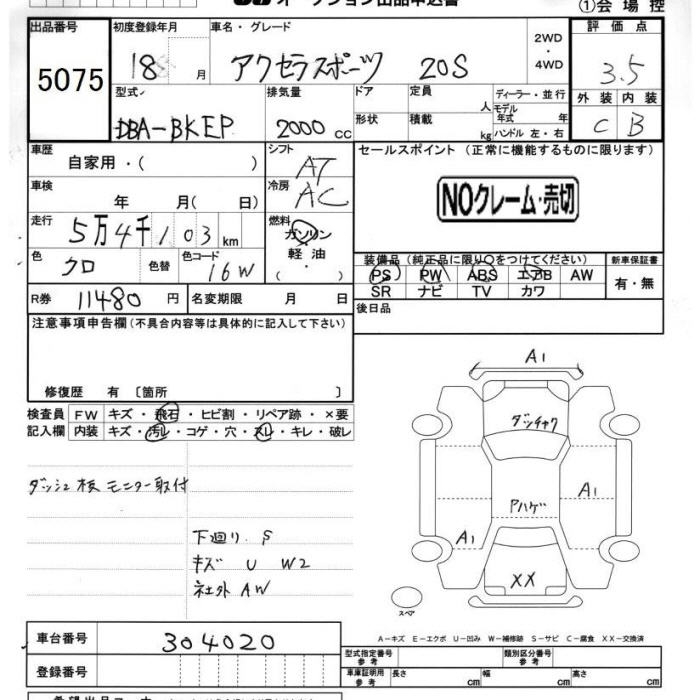 オークション出品申込書
①会場控
出品番号 初度登録年月 車名・グレード 評価点
5075 18 月 アクセラスポーツ 20S 2WD ・ 4WD 3.5
型式 排気量 ドア 定員 人 ディーラー・並行
外装 内装
DBA-BKEP 2000 cc 形状 積載 kg モデル年式 年 ハンドル 左・右 C B
車歴 自家用・( ) シフト AT セールスポイント (正常に機能するものに限ります)
車検 年 月( 日) 冷房 AC NOクレーム・売切
走行 5万4千103km 燃料 ガソリン ・ 軽油 ・ ( )
色 クロ 色替 色コード 16W
装備品 (純正品に限り○をつけてください) 新車保証書
PS PW ABS エアB AW 有・無
SR ナビ TV カワ
R券 11480 円 名変期限 月 日 後日品
注意事項申告欄(不具合内容等は具体的に記入して下さい)
修復歴 有 〔箇所 〕
検査員記入欄 FW キズ・飛石・ヒビ割・リペア跡・×要
内装 キズ・汚レ・コゲ・穴・スレ・キレ・破レ
A1
ダッシュ板 モニター取付
Aハゲ A1
下廻り S A1
キズ U W2
社外AW
XX
スペア
A－キズ E－エクボ U－凹み W－補修跡 S－サビ C－腐食 XX－交換済
車台番号 304020
型式指定番号 参考 類別区分番号 参考
登録番号 車庫証明用 参考 長さ cm 幅 cm 高さ cm
希望出品コーナー